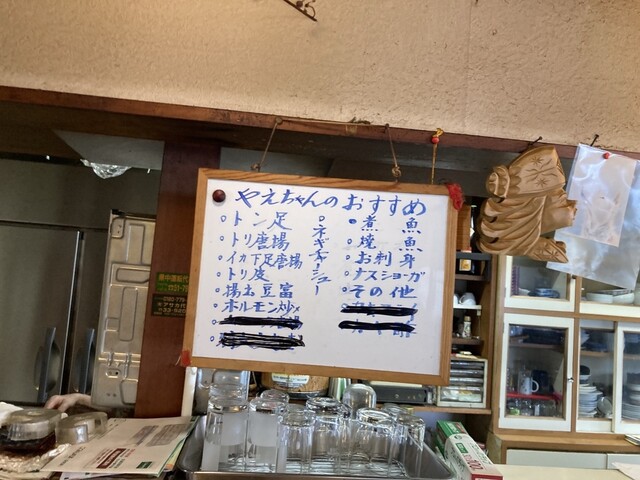 やえちゃんのおすすめ
トン足
トリ唐揚
イカ下足唐揚
トリ皮
揚出豆富
ホルモン炒メ
ネギチャーシュー
煮魚
焼魚
お刺身
ナスショーガ
その他